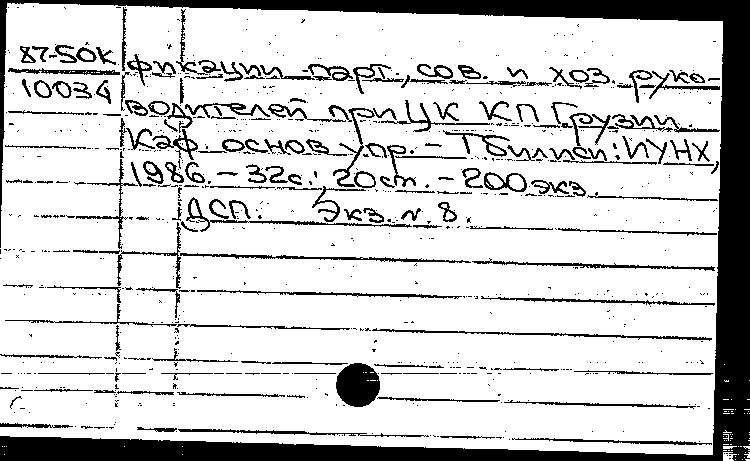 87-50К фикации парт., сов. и хоз. руко-
10034 водителей при ЦК КП Грузии.
Каф. основ упр. – Тбилиси: ИУНХ,
1986. – 32с.; 20см. – 200экз.
ДСП. Экз. N. 8.